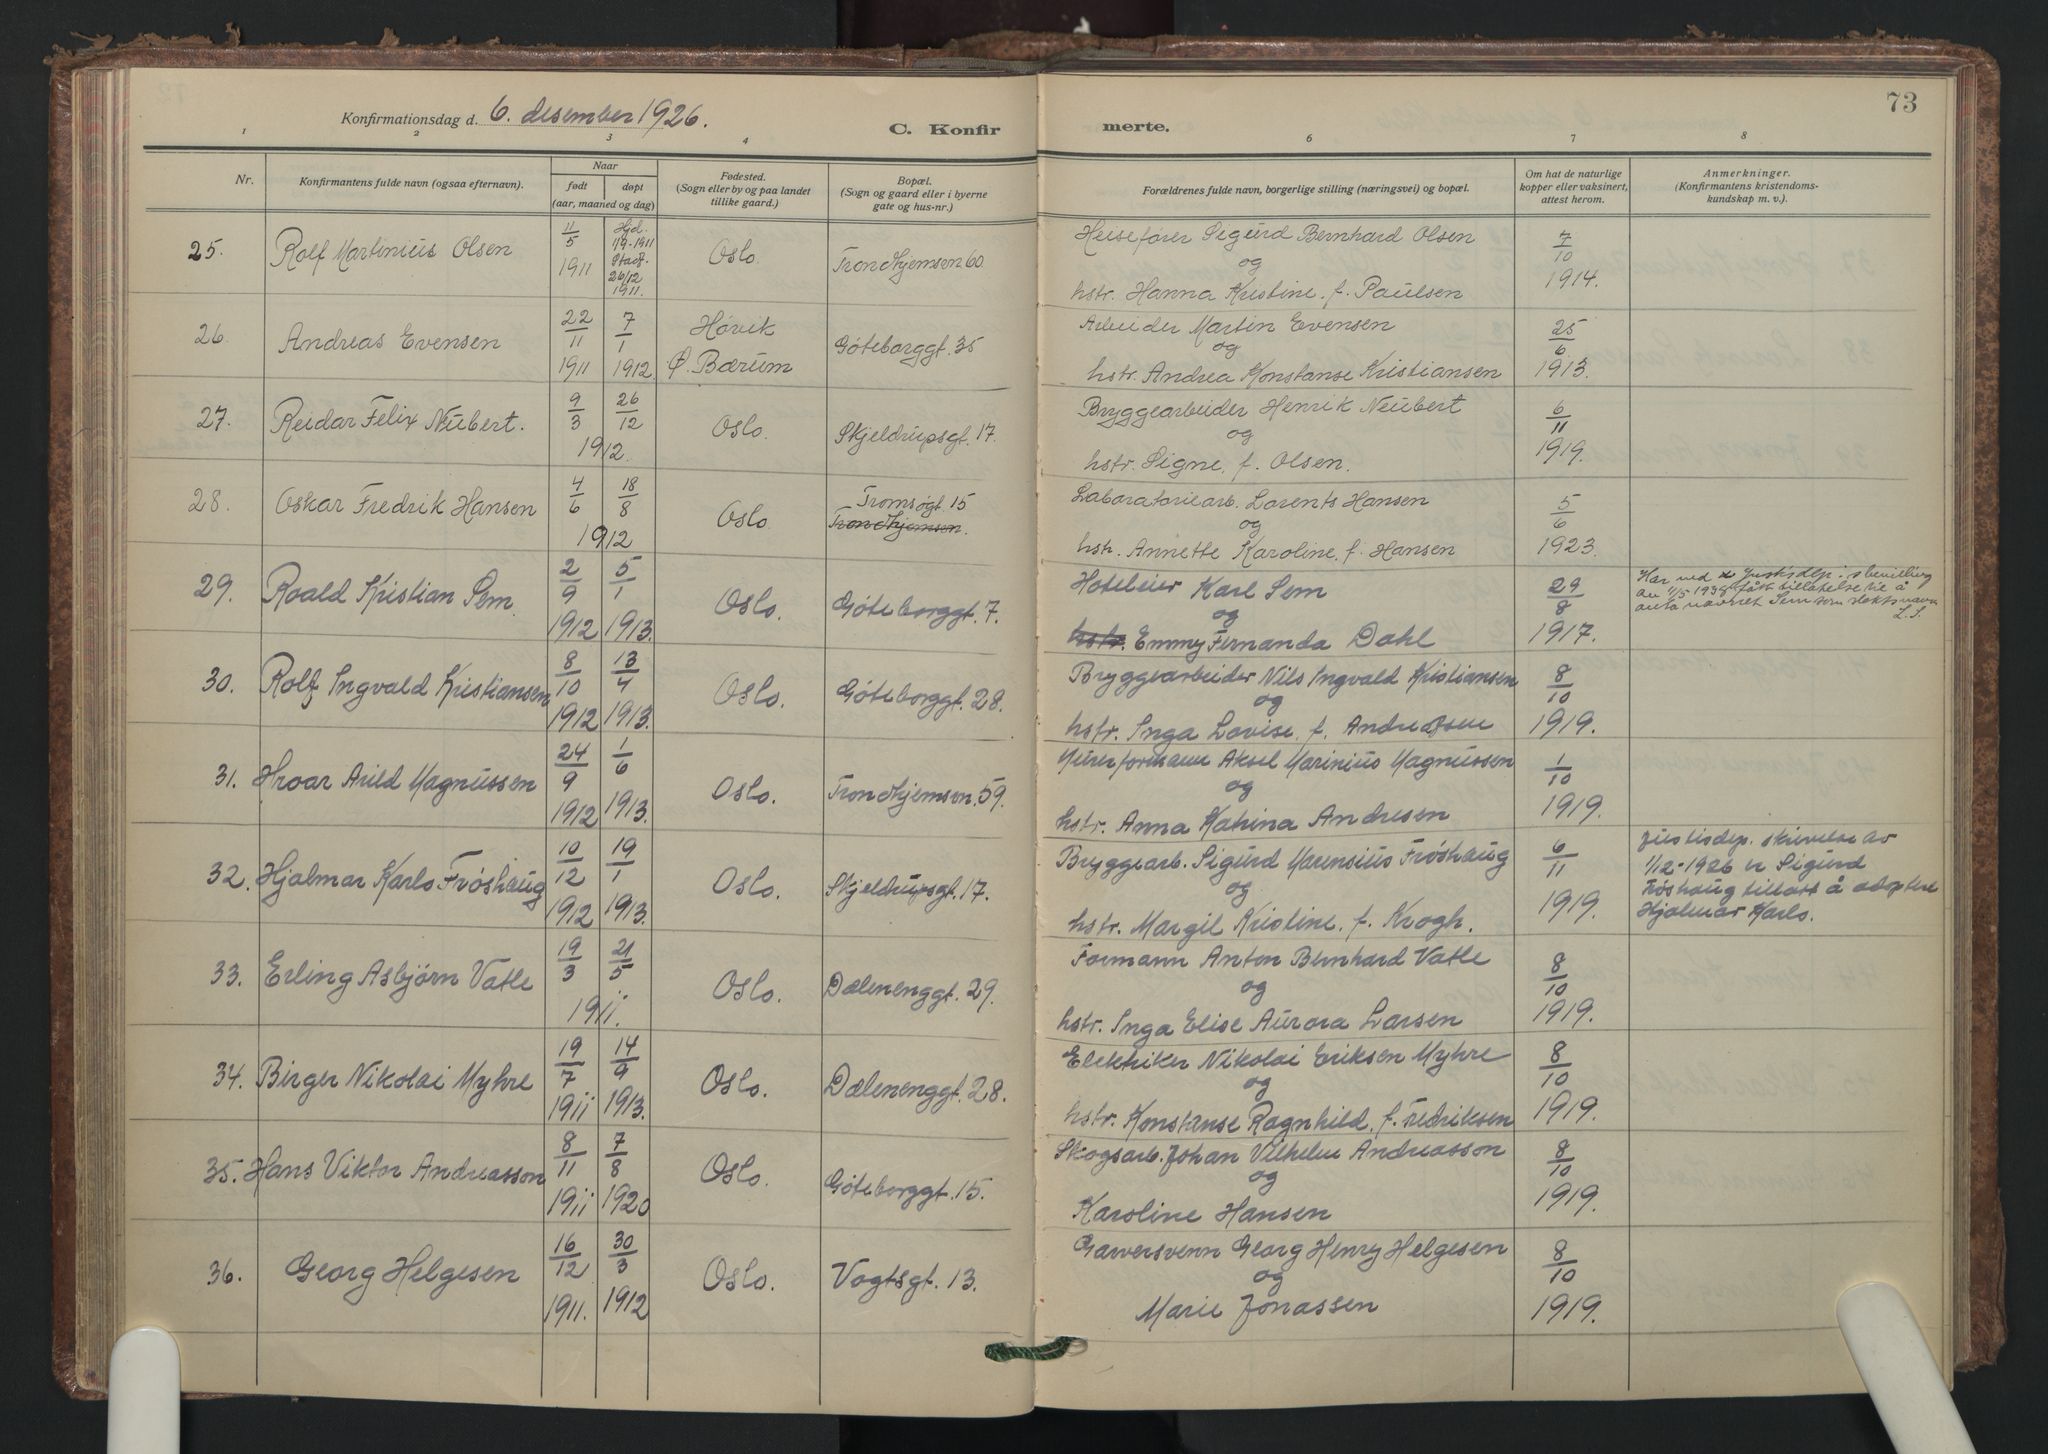 73
Konfirmationsdag d. 6. desember 1926.
C. Konfirmerte.
1 2 3 4 6 7 8
Nr. Konfirmantens fulde navn (ogsaa efternavn). Naar født døpt (aar, maaned og dag) Fødested. (Sogn eller by og paa landet tillike gaard.) Bopæl. (Sogn og gaard eller i byerne gate og hus-nr.) Forældrenes fulde navn, borgerlige stilling (næringsvei) og bopæl. Om hat de naturlige kopper eller vaksinert, attest herom. Anmerkninger. (Konfirmantens kristendomskundskap m. v.).
25. Rolf Martinius Olsen 11/5 1911 Hjd. 1/9-1911 Stadf. 26/12 1911. Oslo. Trondhjemsvn 60. Heisefører Sigurd Bernhard Olsen 7/10 1914.
og
hstr. Hanna Kristine, f. Paulsen
26. Andreas Evensen 22/11 1911 7/1 1912. Høvik Ø. Bærum Göteborggt. 35 Arbeider Martin Evensen 25/6 1913.
og
hstr. Andrea Konstanse Kristiansen
27. Reidar Felix Neubert. 9/3 26/12 1912. Oslo. Skjeldrupsgt. 17. Bryggearbeider Henrik Neubert 6/11 1919.
og
hstr. Signe, f. Olsen.
28. Oskar Fredrik Hansen 4/6 18/8 1912 Oslo. Tromsøgt. 15 Trondhjemsvn. Laboratoriearb. Lorents Hansen 5/6 1923.
og
hstr. Annette Karoline, f. Hansen
29. Roald Kristian Sem. 2/9 1912 5/1 1913. Oslo. Göteborggt. 7. Hoteleier Karl Sem 29/8 1917. Har ved Justisdep.s bevilling
av 11/5 1938 fått tillatelse til å
anta navnet Sem som slektsnavn
L.S.
og
hstr. Emmy Fernanda Dahl
30. Rolf Ingvald Kristiansen 8/10 1912 13/4 1913. Oslo. Göteborggt. 28. Bryggearbeider Nils Ingvald Kristiansen 8/10 1919.
og
hstr. Inga Lovise, f. Andreassen
31. Hroar Arild Magnussen 24/9 1912 1/6 1913. Oslo. Trondhjemsvn. 59. Murerformann Aksel Marinius Magnussen 1/10 1919.
og
hstr. Anna Katrina Andresen
32. Hjalmar Karlo Frøshaug 10/12 1912 19/1 1913. Oslo. Skjeldrupsgt. 17. Bryggearb. Sigurd Marensius Frøshaug 6/11 1919. Justisdep. skrivelse av
1/12-1926 er Sigurd
Frøshaug tillatt å adoptere
Hjalmar Karlo.
og
hstr. Margit Kristine, f. Krogh.
33. Erling Asbjørn Vatle 19/3 21/5 1911. Oslo. Dælenenggt. 29. Formann Anton Bernhard Vatle 8/10 1919.
og
hstr. Inga Elise Aurora Larsen
34. Birger Nikolai Myhre 19/7 1911 14/9 1913. Oslo. Dælenenggt. 28. Elektriker Nikolai Eriksen Myhre 8/10 1919.
og
hstr. Konstanse Ragnhild, f. Fredriksen
35. Hans Viktor Andreasson 8/11 1911 7/8 1920 Oslo. Göteborggt. 15. Skogsarb. Johan Vilhelm Andreasson 8/10 1919.
og
Karoline Hansen
36. Georg Helgesen 16/12 1911. 30/3 1912 Oslo. Vogtsgt. 13. Garversvenn Georg Henry Helgesen 8/10 1919.
og
Marie Jonassen